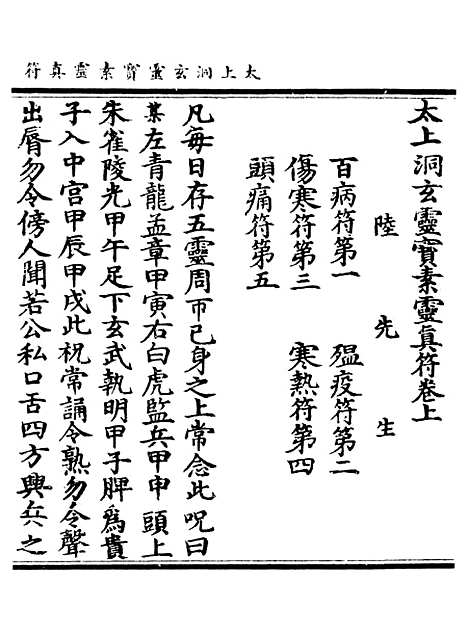 太上洞玄靈寶素靈真符
太上洞玄靈寶素靈真符卷上
陸先生
百病符第一　瘟疫符第二
傷寒符第三　寒熱符第四
頭痛符第五
凡每日存五靈周帀己身之上常念此呪曰
某左青龍孟章甲寅右白虎監兵甲申頭上
朱雀陵光甲午足下玄武執明甲子脾為貴
子入中宮甲辰甲戌此祝常誦令熟勿令聲
出脣勿令傍人聞若公私口舌四方興兵之